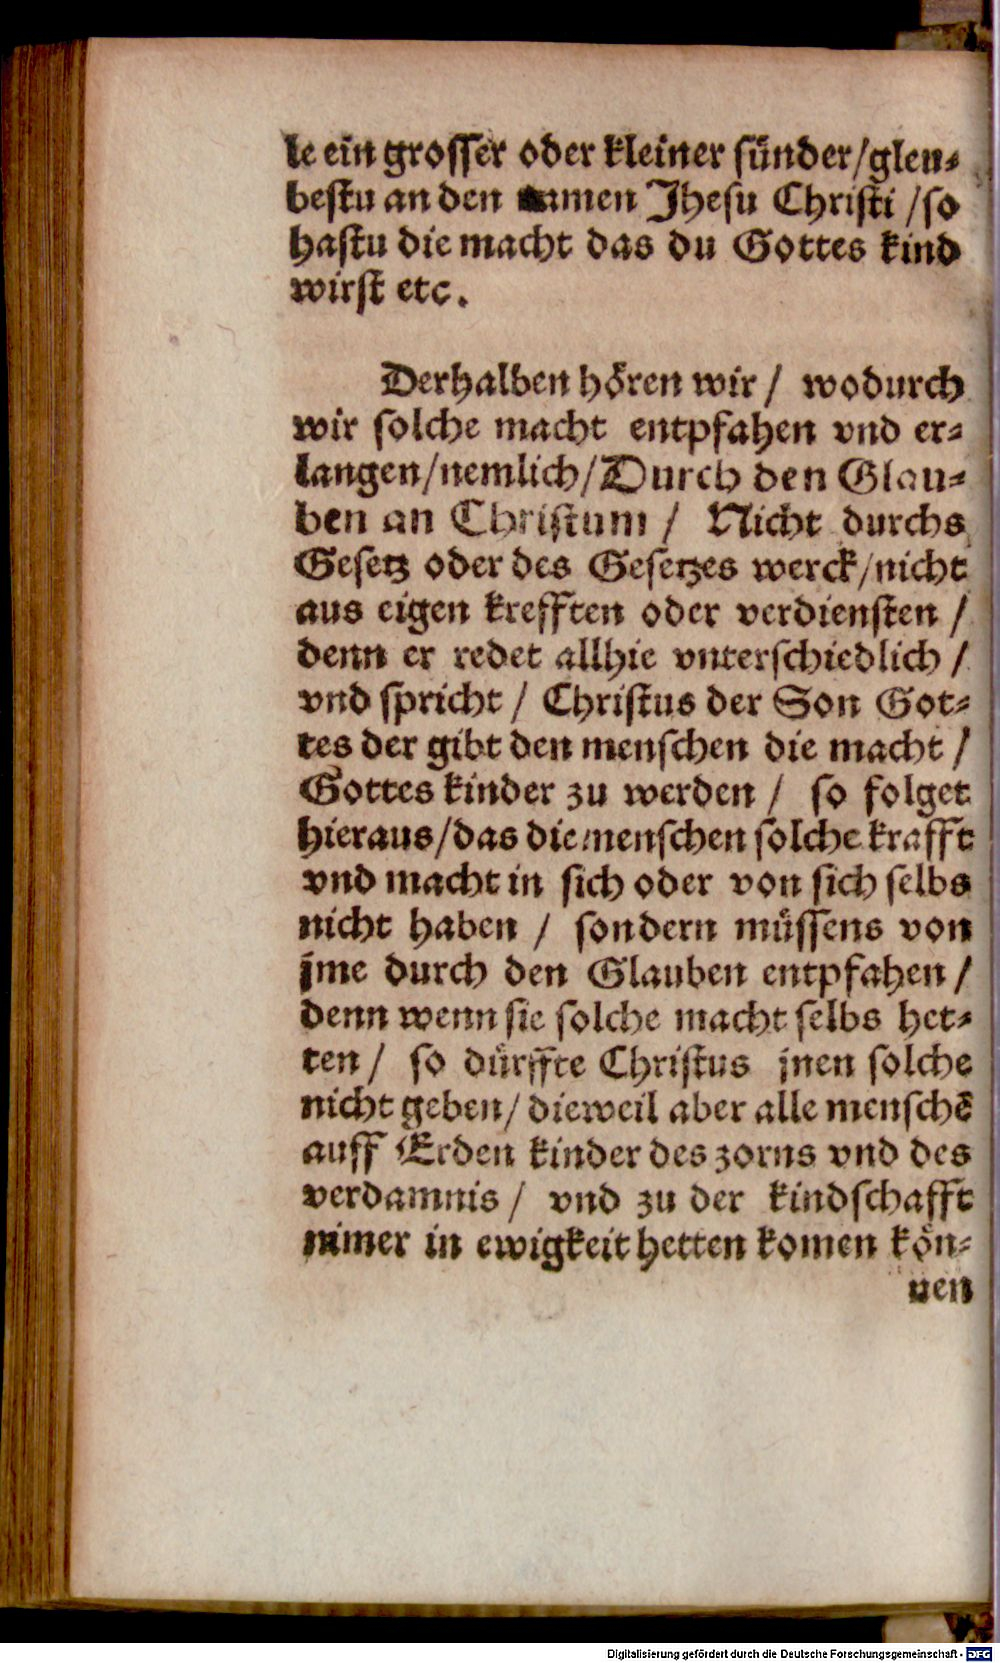 le ein grosser oder kleiner sünder/glen-
bestu an den namen Jhesu Christi /so
hastu die macht das du Gottes kind
wirst etc.
Derhalben hören wir / wodurch
wir solche macht entpfahen vnd er-
langen/nemlich/Durch den Glau-
ben an Christum / Nicht durchs
Gesetz oder des Gesetzes werck/nicht
aus eigen krefften oder verdiensten /
denn er redet allhie vnterschiedlich /
vnd spricht / Christus der Son Got-
tes der gibt den menschen die macht /
Gottes kinder zu werden / so folget
hieraus/das die menschen solche krafft
vnd macht in sich oder von sich selbs
nicht haben / sondern müssens von
jme durch den Glauben entpfahen /
denn wenn sie solche macht selbs het-
ten / so dürffte Christus jnen solche
nicht geben/ dieweil aber alle menschē
auff Erden kinder des zorns vnd des
verdamnis / vnd zu der kindschafft
nimer in ewigkeit hetten komen kön-
nen
Digitalisierung gefördert durch die Deutsche Forschungsgemeinschaft - DFG